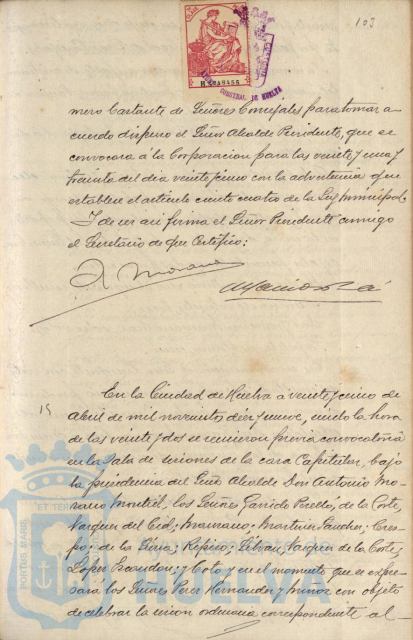 103
mero bastante de Señores Concejales para tomar a-
cuerdo dispuso el Señor Alcalde Presidente, que se
convocara á la Corporacion para las veinte y una y
treinta del dia veinte y cinco con la advertencia que
establece el artículo ciento cuatro de la Ley Municipal.
Y de ser asi firma el Señor Presidente conmigo
el Secretario de que Certifico:
A Morano
15
En la Ciudad de Huelva a veinte y cinco de
Abril de mil novecientos diez y nueve, siendo la hora
de las veinte y dos se reunieron previa convocatoria
en la Sala de sesiones de la casa Capitular, bajo
la presidencia del Señor Alcalde Don Antonio Mo-
rano Montiel, los Señores Garrido Perelló, de la Corte,
Vazquez del Cid, Manzano, Martin Sanchez, Cres-
po, de la Vazquez de la Corte,
Lopez y Coto y en el momento que se expre-
sará los Señores Perez Hernandez y Muñoz con objeto
de celebrar la sesion ordinaria correspondiente al
PORTUS MARIS ET TERRÆ
HUELVA